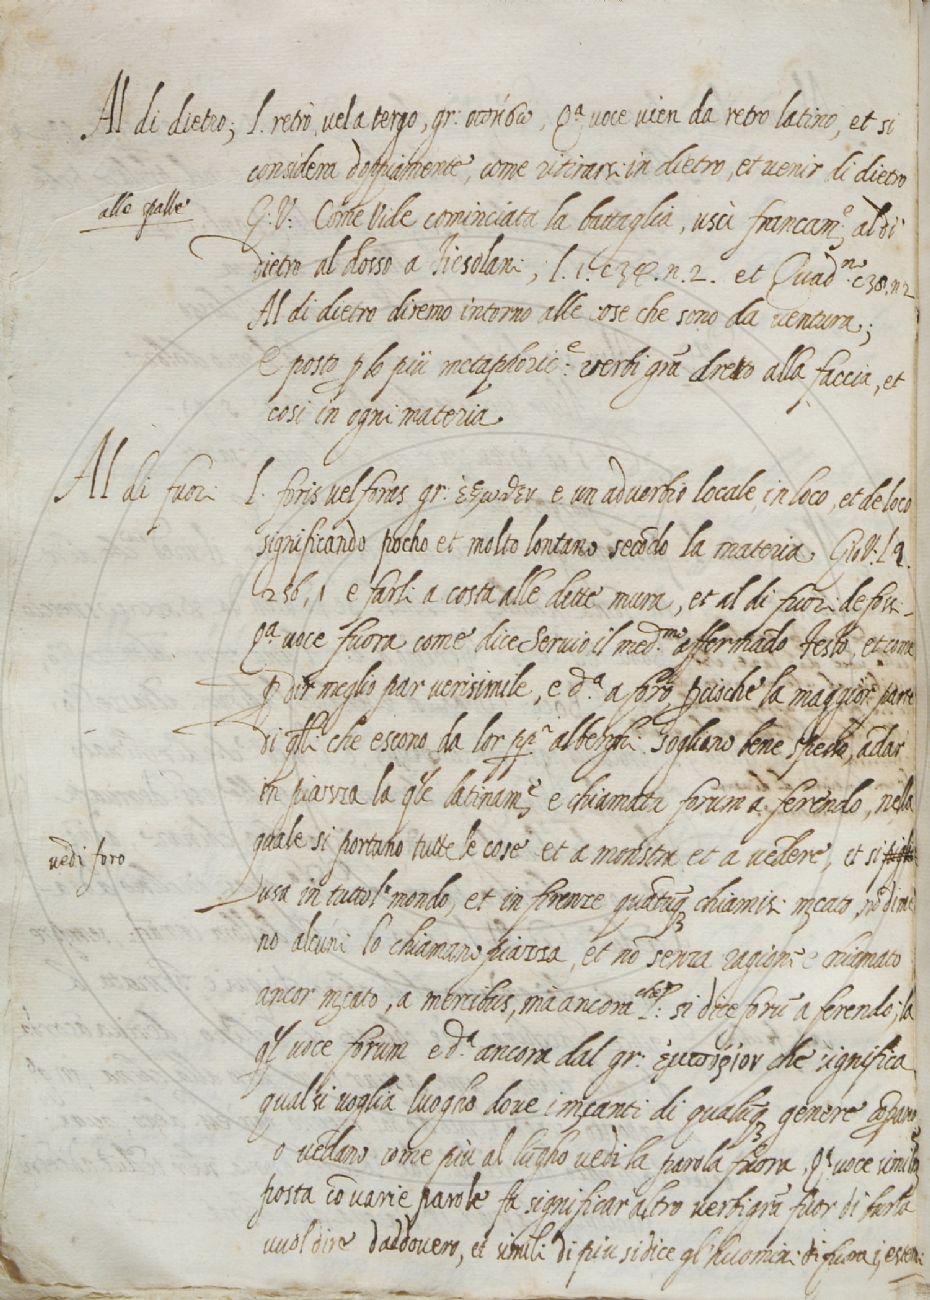 Al di dietro; l. retro, vel a tergo, gr: ὀπίσω, Qª voce vien da retro latino, et si
considera doppiamente, come ritirarsi in dietro, et venir di dietro
alle spalle
G.V: Come vide cominciata la battaglia, uscì francamᵉ: al di
dietro al dosso a Fiesolani; l. 1. c 38. n. 2. et Quadⁿ. c 38. n 2
Al di dietro diremo intorno alle cose che sono da ventura;
E posto p lo più metaphoricᵉ: verbi grã dreto alla faccia, et
così in ogni materia
Al di fuori l. foris vel foras gr: ἔξωθεν e un adverbio locale, in loco, et de loco
significando pocho et molto lontano secõdo la materia. Gio V. l 9.
256, 1 e farli a costa alle dette mura, et al di fuori de fossi
Qª voce fuora come dice Servio il medᵐᵒ affermãdo Festo, et come
p dir meglio par verisimile, e dª a foro, pcioche la maggior parte
di qlli che escono da lor ppⁱ alberghi sogliono bene spesso, ãdar
in piazza la qle latinamᵉ e chiamata forum a ferendo, nella
quale si portano tutte le cose et a monstra et a vedere, et si
vedi foro
usa in tutto l mondo, et in firenze quãtuq chiamisi mcato, nõdime
no alcuni lo chiamano piazza, et nõ senza ragione e chiamato
ancor mcato, a mercibus, ma ancora si dice forũ a ferendo; la
ql voce forum e dª ancora dal gr: ἐμπόριον che significa
qual si voglia luogho dove imcanti di qualũq genere cõprano
o vedano come più al lugho vedi la parola fuora. Qª voce similmᵉ
posta cõ varie parole fa significar altro verbigrã fuor di burla
vuol dire daddovero, et simili di più si dice gl'huomini di fuora i, esterni